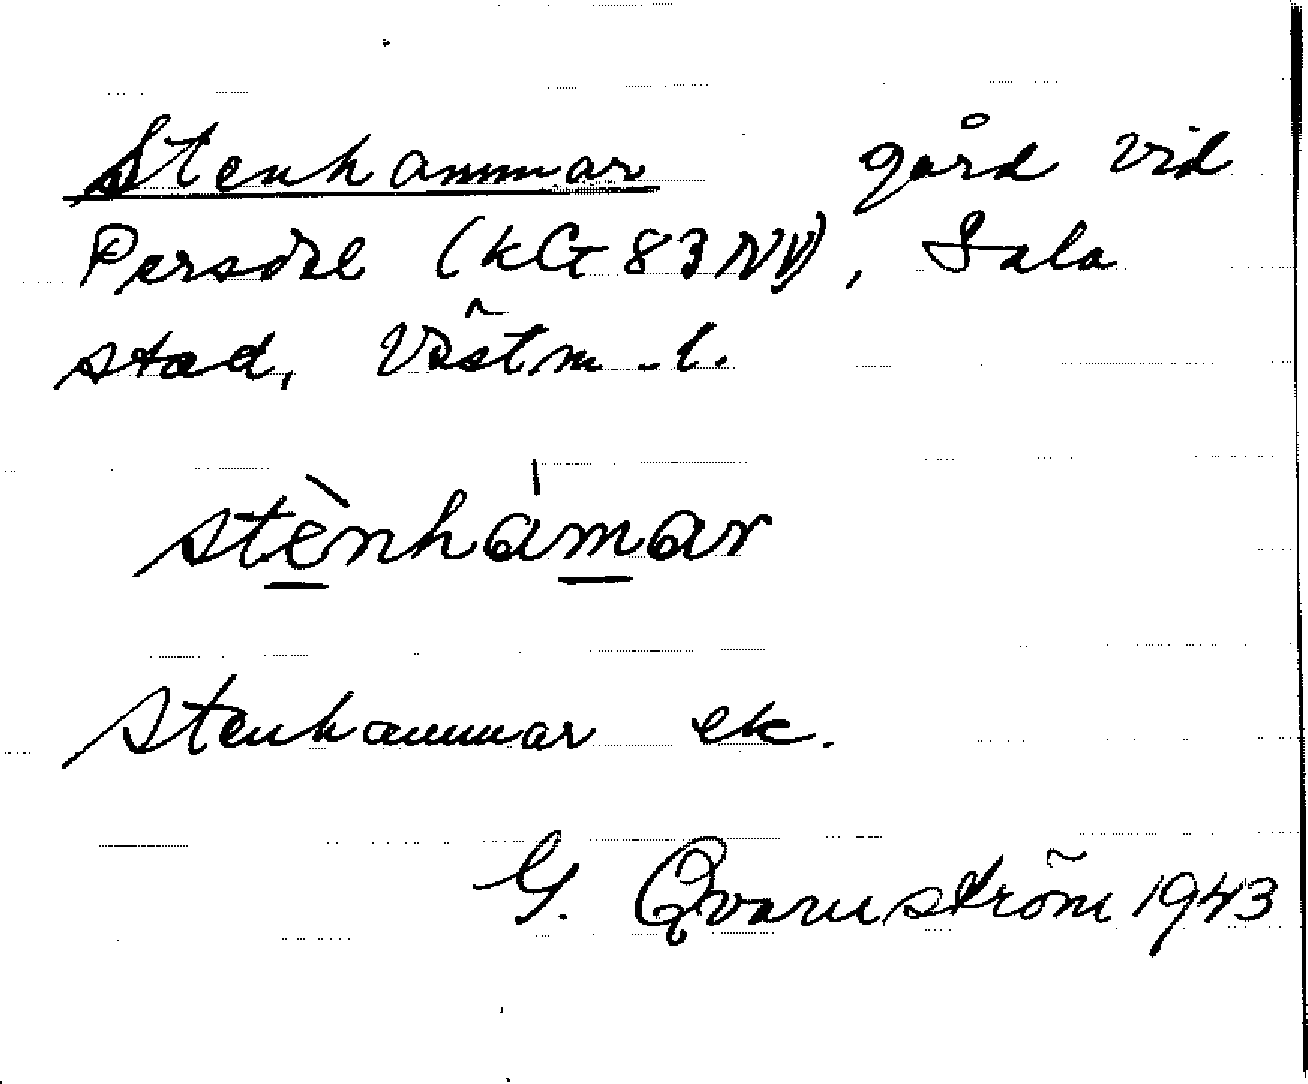 Stenhammar gård vid
Persdal (kG 83 NV), Sala
stad, Västm.l.
stènhámar
Stenhammar ek.
G. Qvarnström 1943